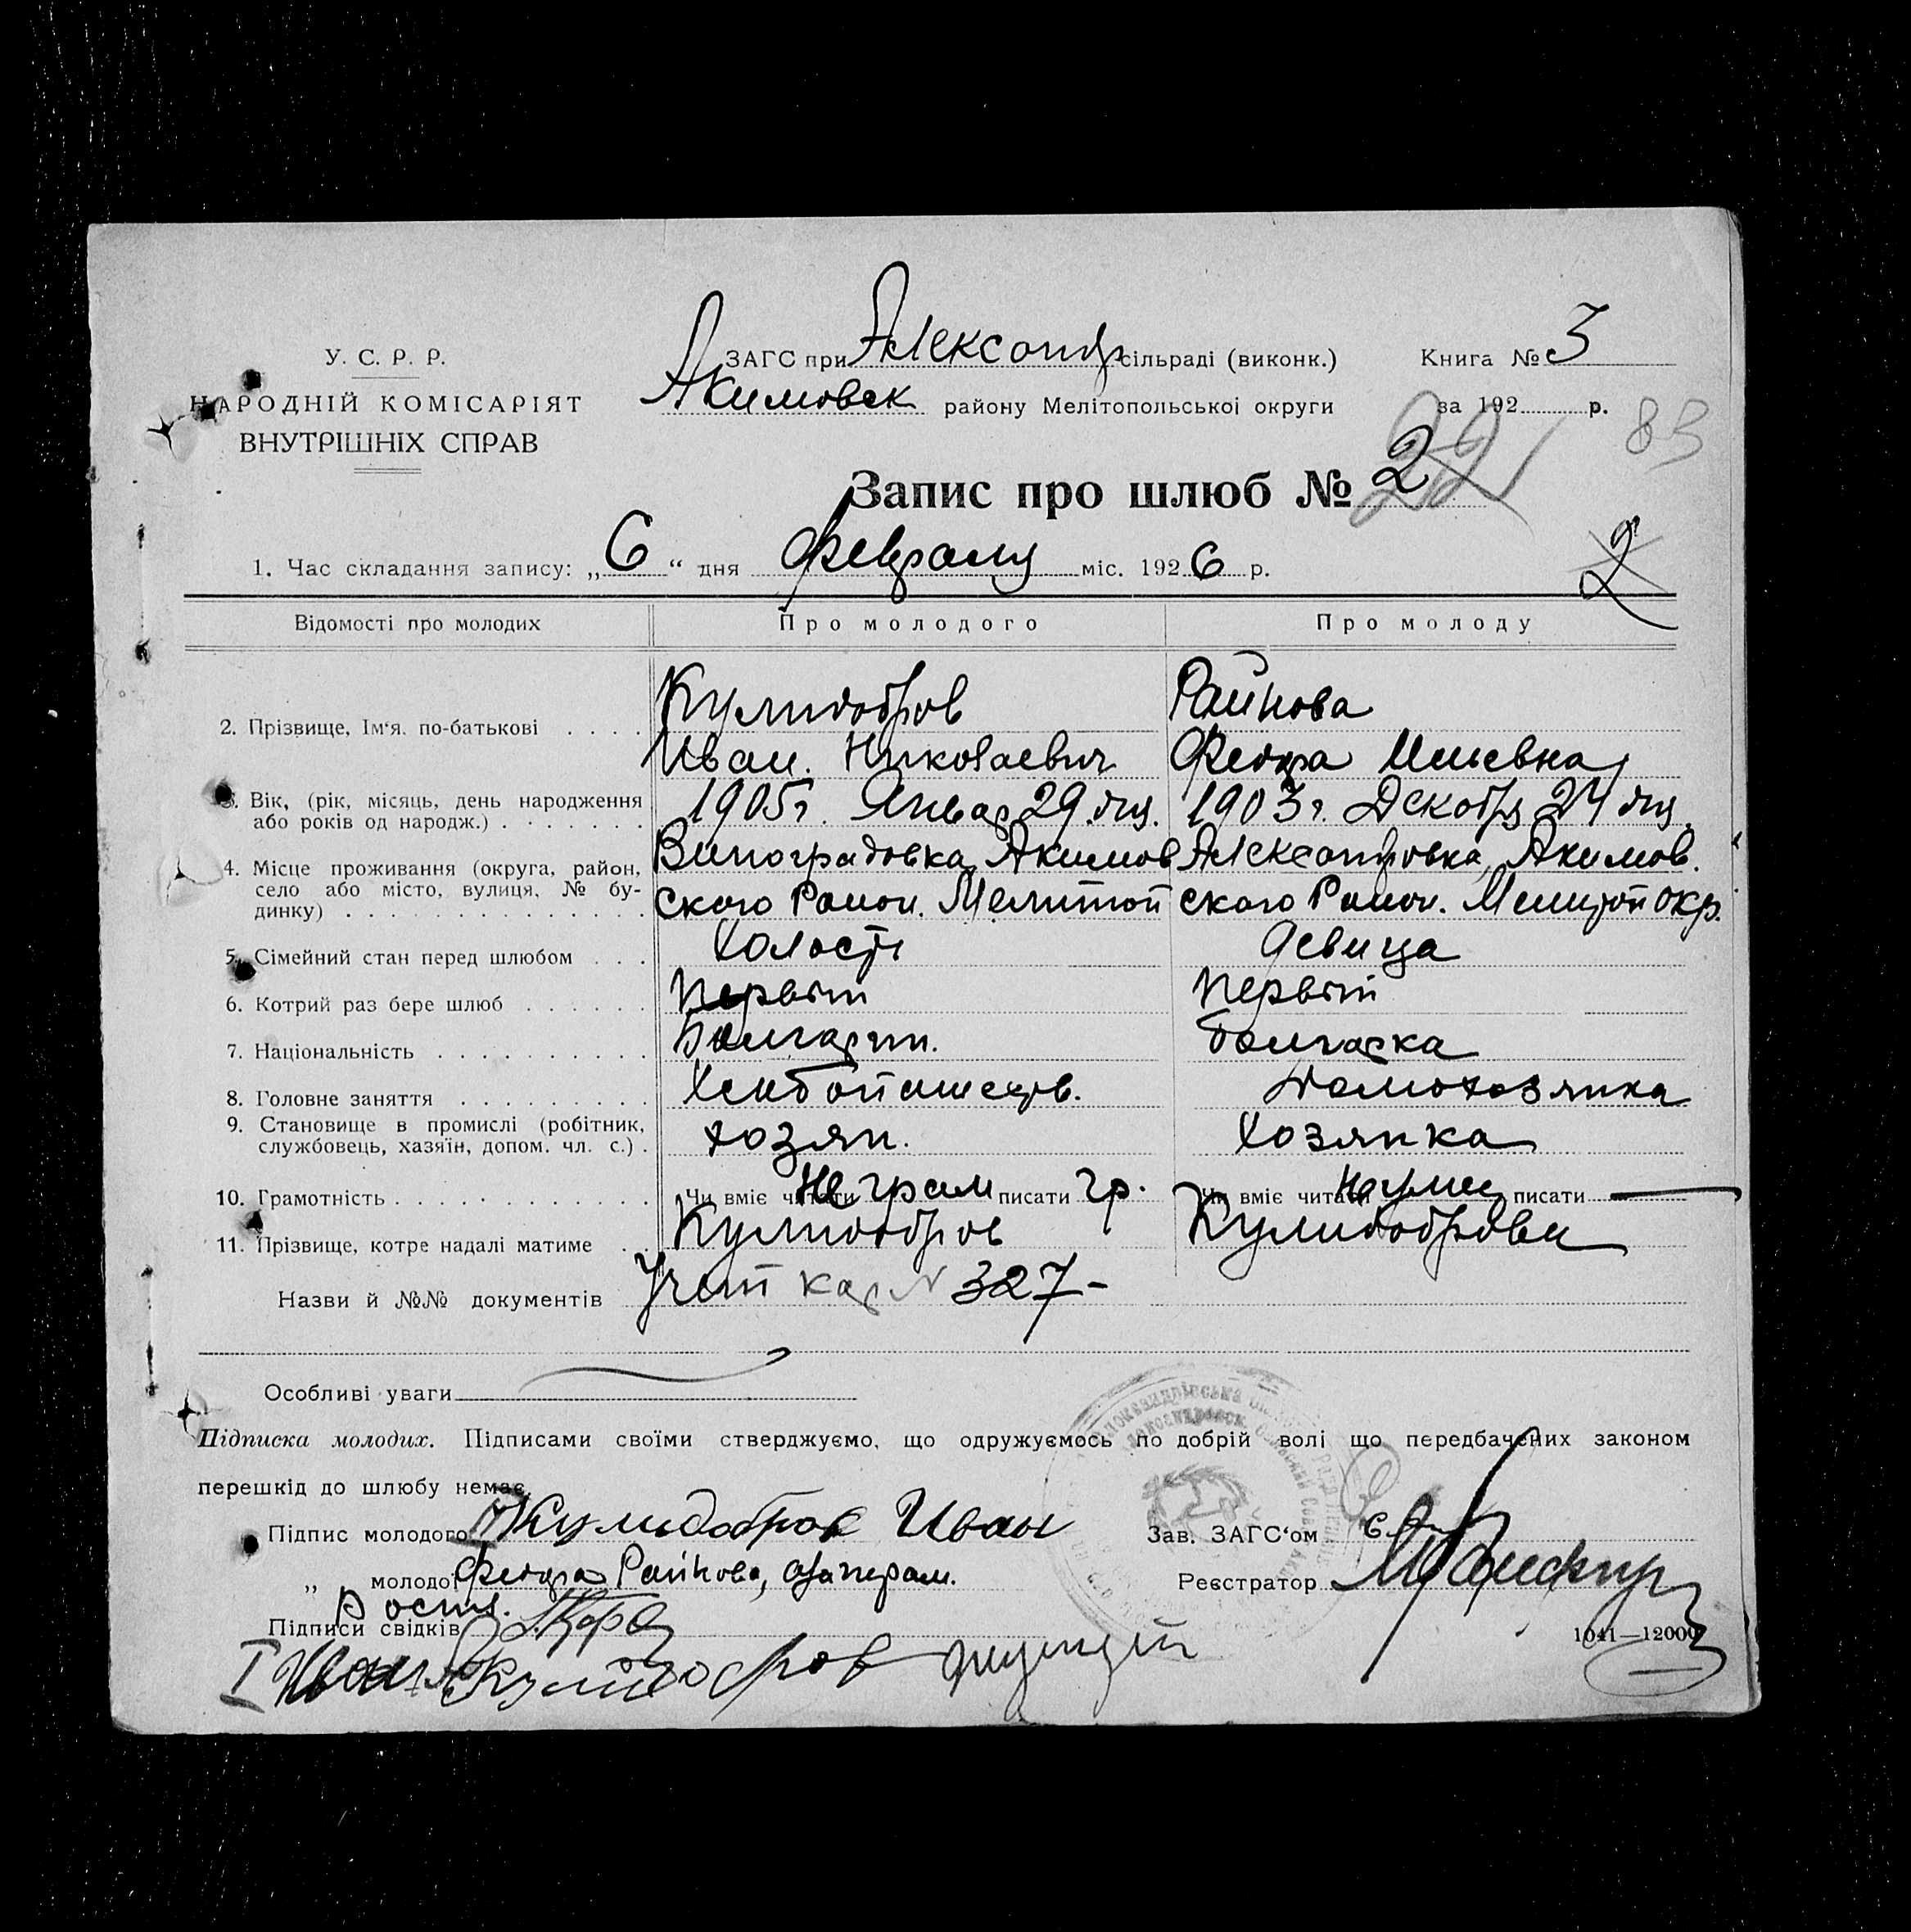 У. С. Р. Р.
НАРОДНІЙ КОМІСАРІЯТ
ВНУТРІШНІХ СПРАВ
ЗАГС при Александр сільраді (виконк.)
Акимовск району Мелітопольської округи
Книга № 3
за 192 р.
83
Запис про шлюб № 2
2
1. Час складання запису: „6“ дня Февраля міс. 1926 р.
Відомості про молодих Про молодого Про молоду
2. Прізвище, Ім‘я. по-батькові Кулидобров Райнова
Иван. Николаевич Федора Ильевна
3. Вік, (рік, місяць, день народження або років од народж.) 1905г. Январ 29 дня. 1903г. Декабр 24 дня
4. Місце проживання (округа, район, село або місто, вулиця, № будинку)
Виноградовка, Акимов Александровка, Акимов.
ского Район. Мелитоп ского Район. Мелитоп окр.
5. Сімейний стан перед шлюбом Холост девица
6. Котрий раз бере шлюб первый первый
7. Національність Болгарин. болгарка
8. Головне заняття Хлебопашеств. домохозяйка
9. Становище в промислі (робітник, службовець, хазяїн, допом. чл. с.) хозяин. Хозяйка
10. Грамотність Чи вміє читати Не грам писати гр. Чи вміє читати писати
11. Прізвище, котре надалі матиме Кулидобров Кулидоброва
Назви й №№ документів Учет кар N 327-
Особливі уваги
Підписка молодих. Підписами своїми стверджуємо, що одружуємось по добрій волі що передбачених законом
перешкід до шлюбу немає.
Підпис молодого Кулидобров Иван
Зав. ЗАГС‘ом
„ молодої Федора Райнова,
Реєстратор
Підписи свідків
1041—12000
I Иван Кулидобров